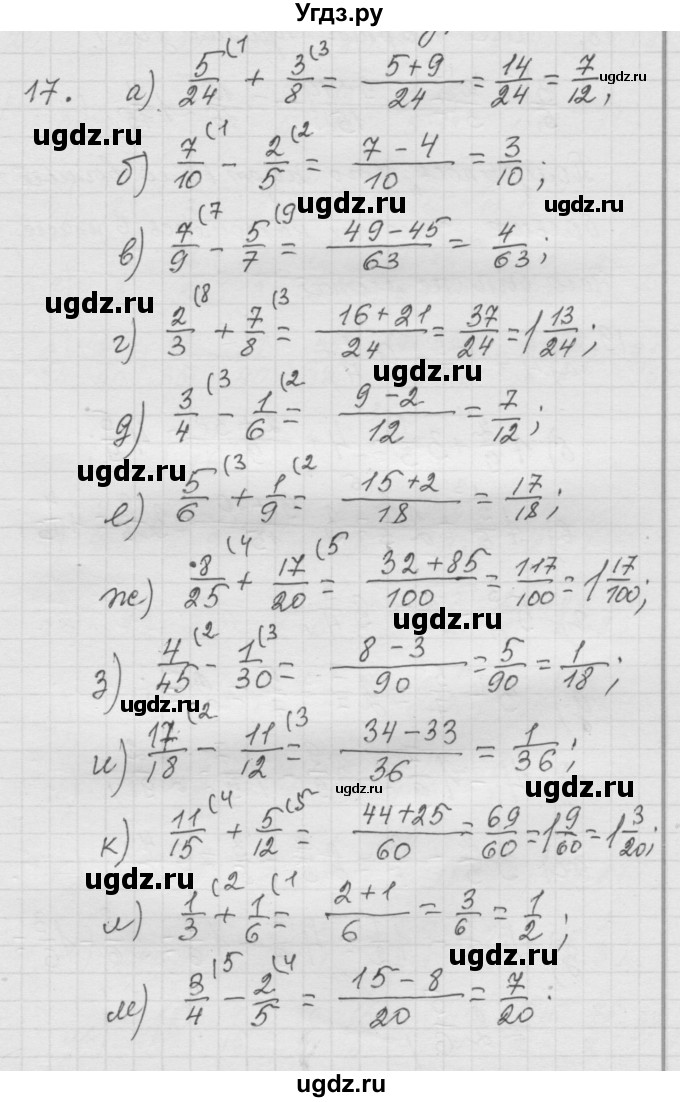 Угдз.ру
17. а) 5/24 (1 + 3/8 (3 = (5+9)/24 = 14/24 = 7/12;
ugdz.ru
ugdz.ru
б) 7/10 (1 - 2/5 (2 = (7-4)/10 = 3/10;
ugdz.ru
ugdz.ru
в) 7/9 (7 - 5/7 (9 = (49-45)/63 = 4/63;
ugdz.ru
г) 2/3 (8 + 7/8 (3 = (16+21)/24 = 37/24 = 1 13/24;
ugdz.ru
д) 3/4 (3 - 1/6 (2 = (9-2)/12 = 7/12;
ugdz.ru
е) 5/6 (3 + 1/9 (2 = (15+2)/18 = 17/18;
ж) 8/25 (4 + 17/20 (5 = (32+85)/100 = 117/100 = 1 17/100;
ugdz.ru
з) 4/45 (2 - 1/30 (3 = (8-3)/90 = 5/90 = 1/18;
ugdz.ru
и) 17/18 (2 - 11/12 (3 = (34-33)/36 = 1/36;
ugdz.ru
к) 11/15 (4 + 5/12 (5 = (44+25)/60 = 69/60 = 1 9/60 = 1 3/20;
ugdz.ru
л) 1/3 (2 + 1/6 (1 = (2+1)/6 = 3/6 = 1/2;
ugdz.ru
м) 3/4 (5 - 2/5 (4 = (15-8)/20 = 7/20.
ugdz.ru